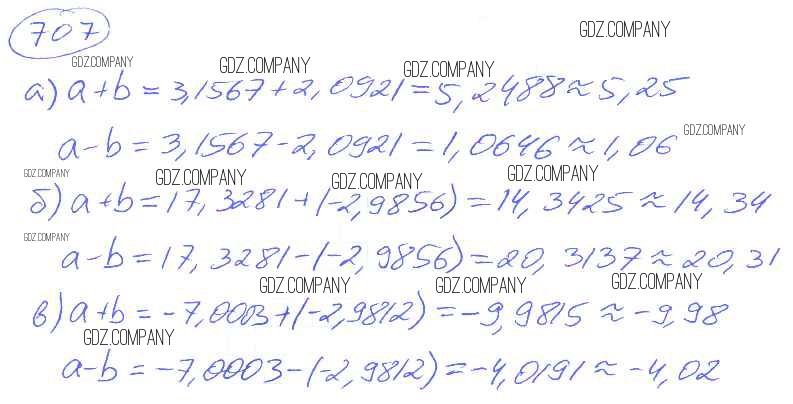 707
GDZ.COMPANY
GDZ.COMPANY GDZ.COMPANY GDZ.COMPANY
а) a+b = 3,1567+2,0921 = 5,2488 ≈ 5,25
a-b = 3,1567-2,0921 = 1,0646 ≈ 1,06 GDZ.COMPANY
GDZ.COMPANY GDZ.COMPANY GDZ.COMPANY GDZ.COMPANY
б) a+b = 17,3281+(-2,9856) = 14,3425 ≈ 14,34
GDZ.COMPANY
a-b = 17,3281-(-2,9856) = 20,3137 ≈ 20,31
GDZ.COMPANY GDZ.COMPANY GDZ.COMPANY
в) a+b = -7,0003+(-2,9812) = -9,9815 ≈ -9,98
GDZ.COMPANY
a-b = -7,0003-(-2,9812) = -4,0191 ≈ -4,02